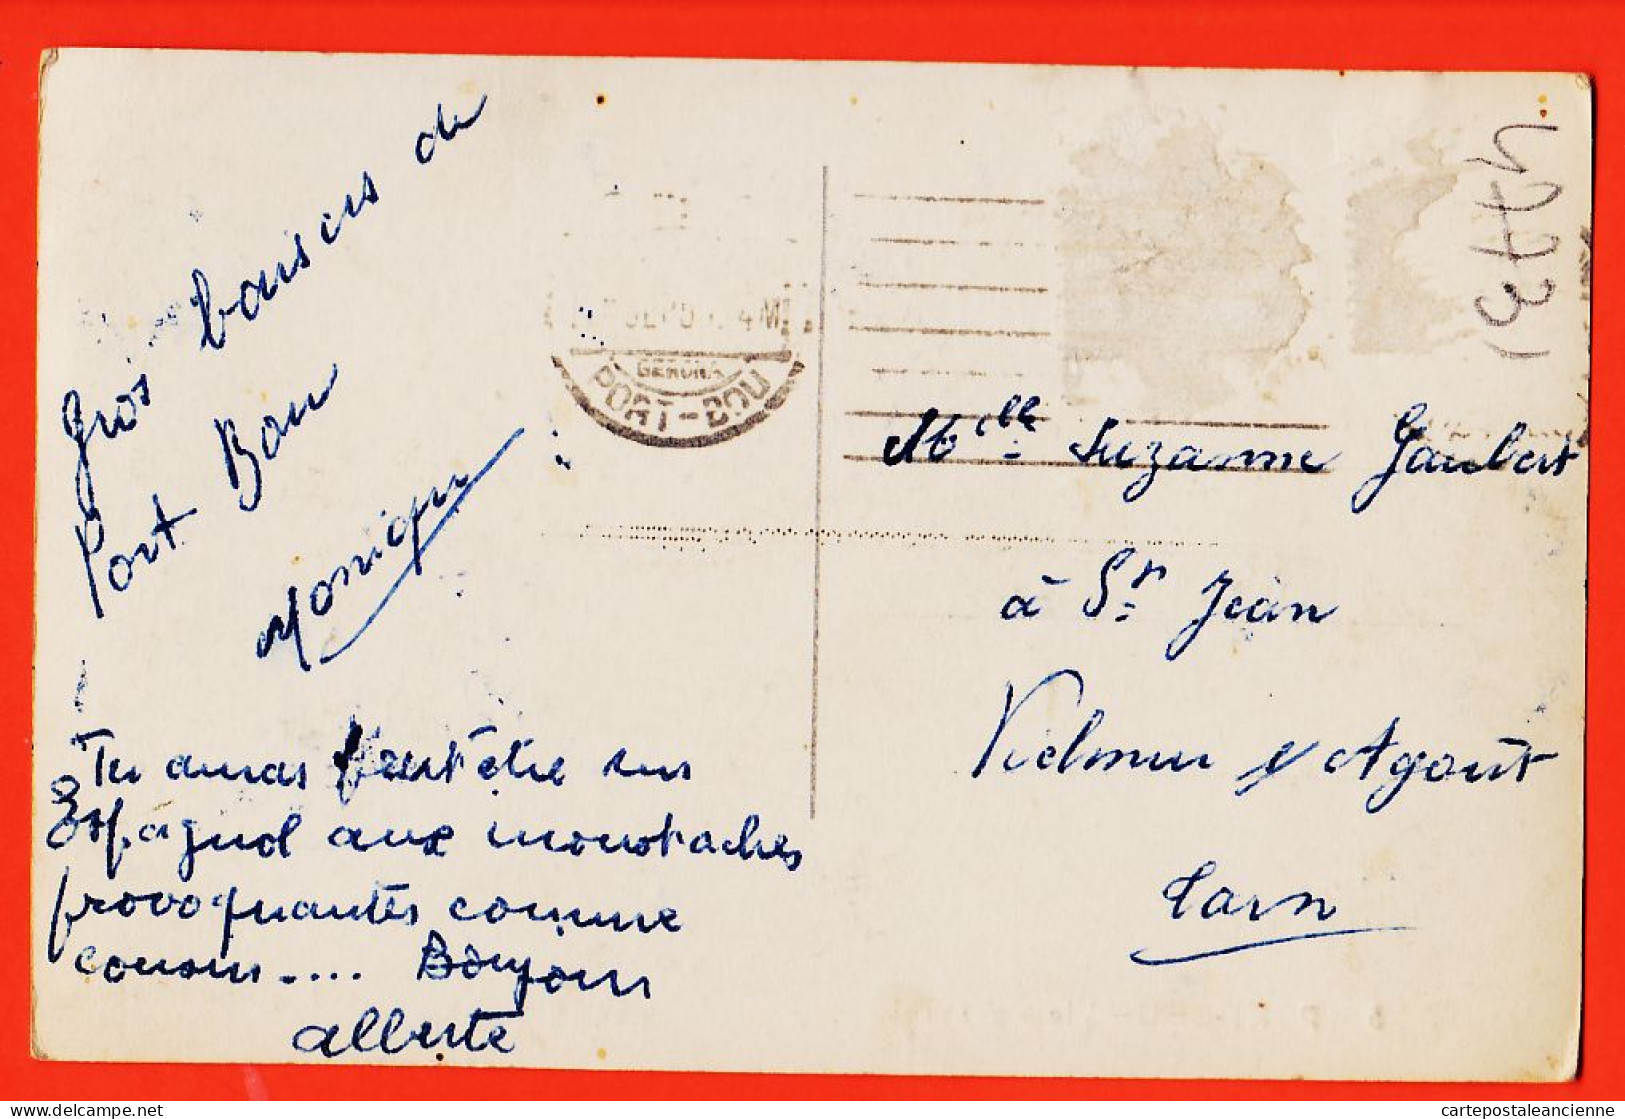 Gros baisers de
Port Bou
Monique
Tu auras peut être un
Espagnol aux moustaches
provoquantes comme
cousin.... Bonjour
alberte
GERONA
PORT-BOU
Melle Suzanne Gaubert
à St Jean
Vielmur s/ Agout
Tarn
delcampe.net
cartepostaleancienne